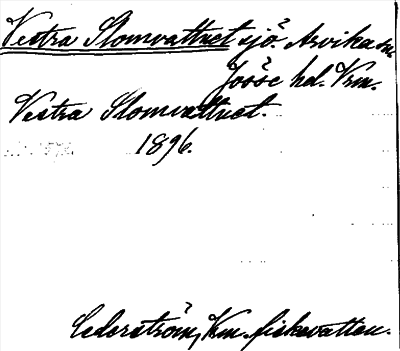 Vestra Slomvattnet sjö. Arvika sn.
Jösse hd. Vrm.
Vestra Slomvattnet.
1896.
Cederström, Vrm. fiskevatten.